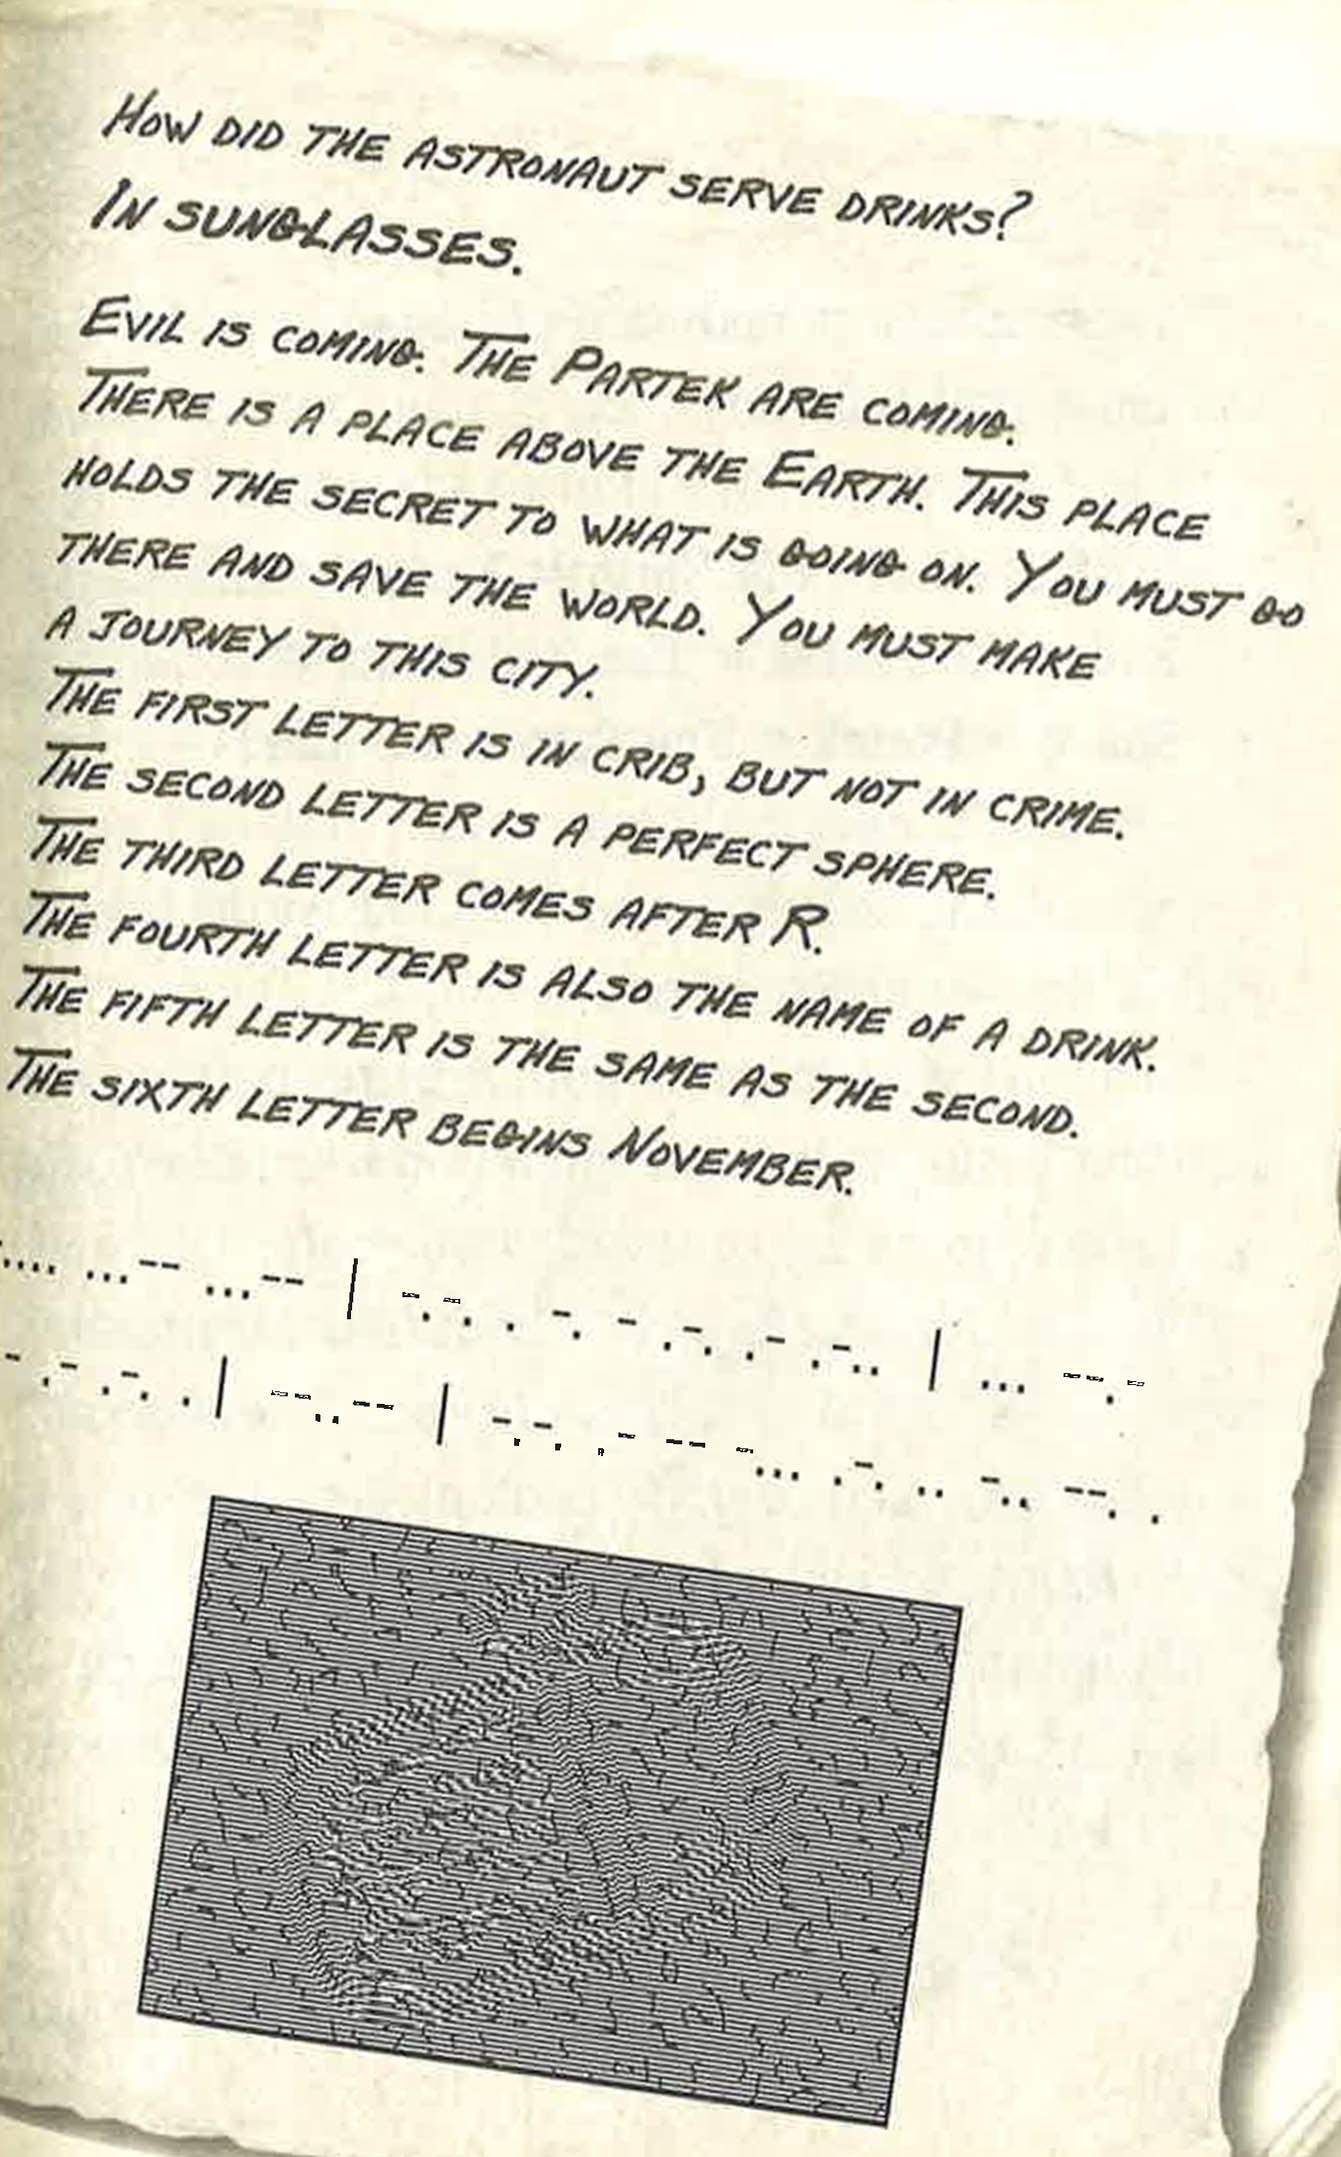 HOW DID THE ASTRONAUT SERVE DRINKS?
IN SUNGLASSES.
EVIL IS COMING. THE PARTEK ARE COMING.
THERE IS A PLACE ABOVE THE EARTH. THIS PLACE
HOLDS THE SECRET TO WHAT IS GOING ON. YOU MUST GO
THERE AND SAVE THE WORLD. YOU MUST MAKE
A JOURNEY TO THIS CITY.
THE FIRST LETTER IS IN CRIB, BUT NOT IN CRIME.
THE SECOND LETTER IS A PERFECT SPHERE.
THE THIRD LETTER COMES AFTER R.
THE FOURTH LETTER IS ALSO THE NAME OF A DRINK.
THE FIFTH LETTER IS THE SAME AS THE SECOND.
THE SIXTH LETTER BEGINS NOVEMBER.
..... ...-- ...-- | -.-. . -. - .-. .- .-.. | ... --.-
- .- .-. . | --..-- | -.-. .- -- -... .-. .. -.. --. .